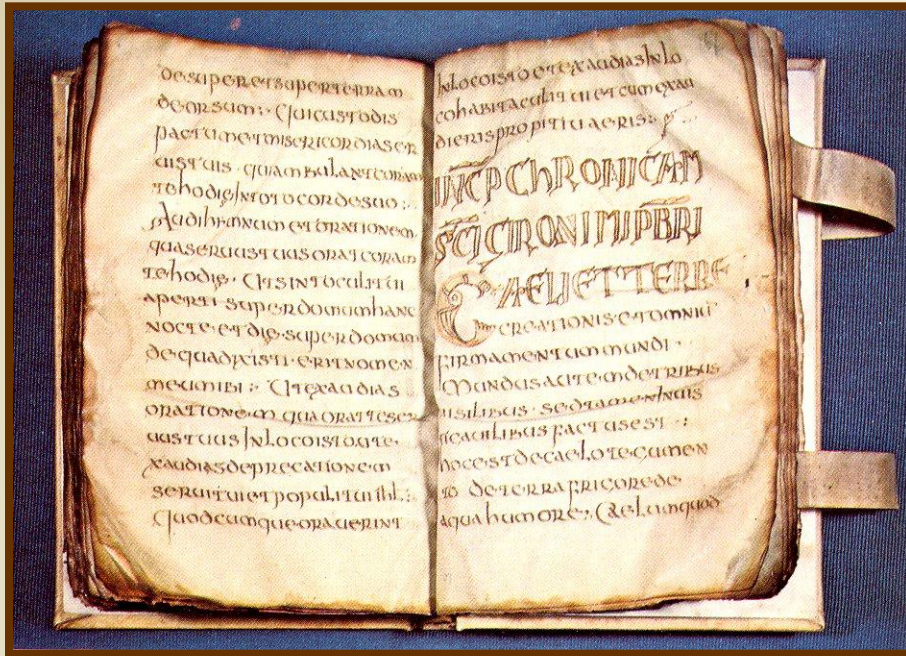 desuper et super terram
deorsum :, Qui custodis
pactum et misericordias ser
uis tuis · qui ambulant coram
te hodie, in toto corde suo :,
Audi hymnum et orationem
qua seruus tuus orat coram
te hodie · Ut sint oculi tui
aperti super domum hanc
nocte · et die · super domum
de qua dixisti · erit nomen
meum ibi :, Ut exaudias
orationem qua orat te ser
uus tuus In loco isto ut e
xaudias deprecationem
serui tui et populi tui ihl :,
Quodcumque orauerint
In loco isto et exaudias In lo
co habitaculi tui et cum exau
dieris propitiu aeris :,
INCP CHRONICAM
SCI GIRONIMI PBRI
CAELI ET TERRE
CREATIONIS Et omniu
firmamentum mundi ·
Mundus autem de tribus
uisilibus · sed tamen Inuis
ticauilibus factus est :,
hoc est de caelo te cumen
to de terra frigore de
aqua humore :, Caelum quod